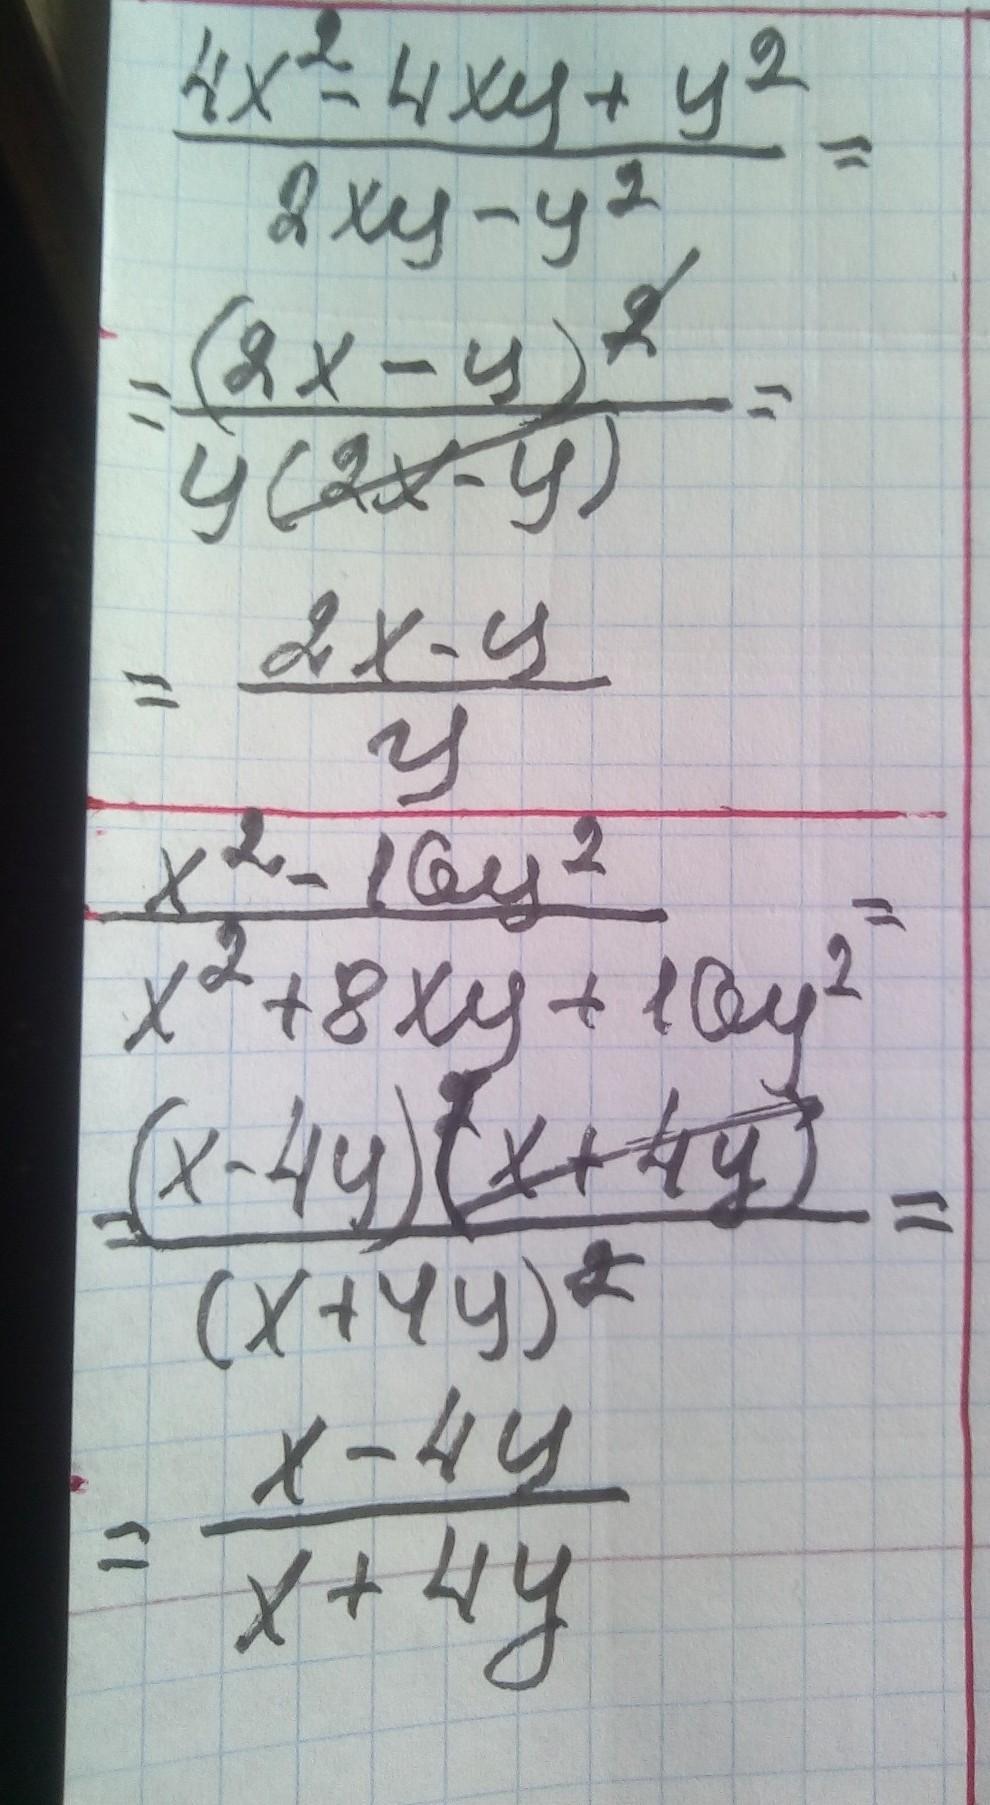 4x² - 4xy + y²
2xy - y² =
= (2x - y)²
y(2x - y) =
= 2x - y
y
x² - 16y²
x² + 8xy + 16y² =
= (x - 4y)(x + 4y)
(x + 4y)² =
= x - 4y
x + 4y